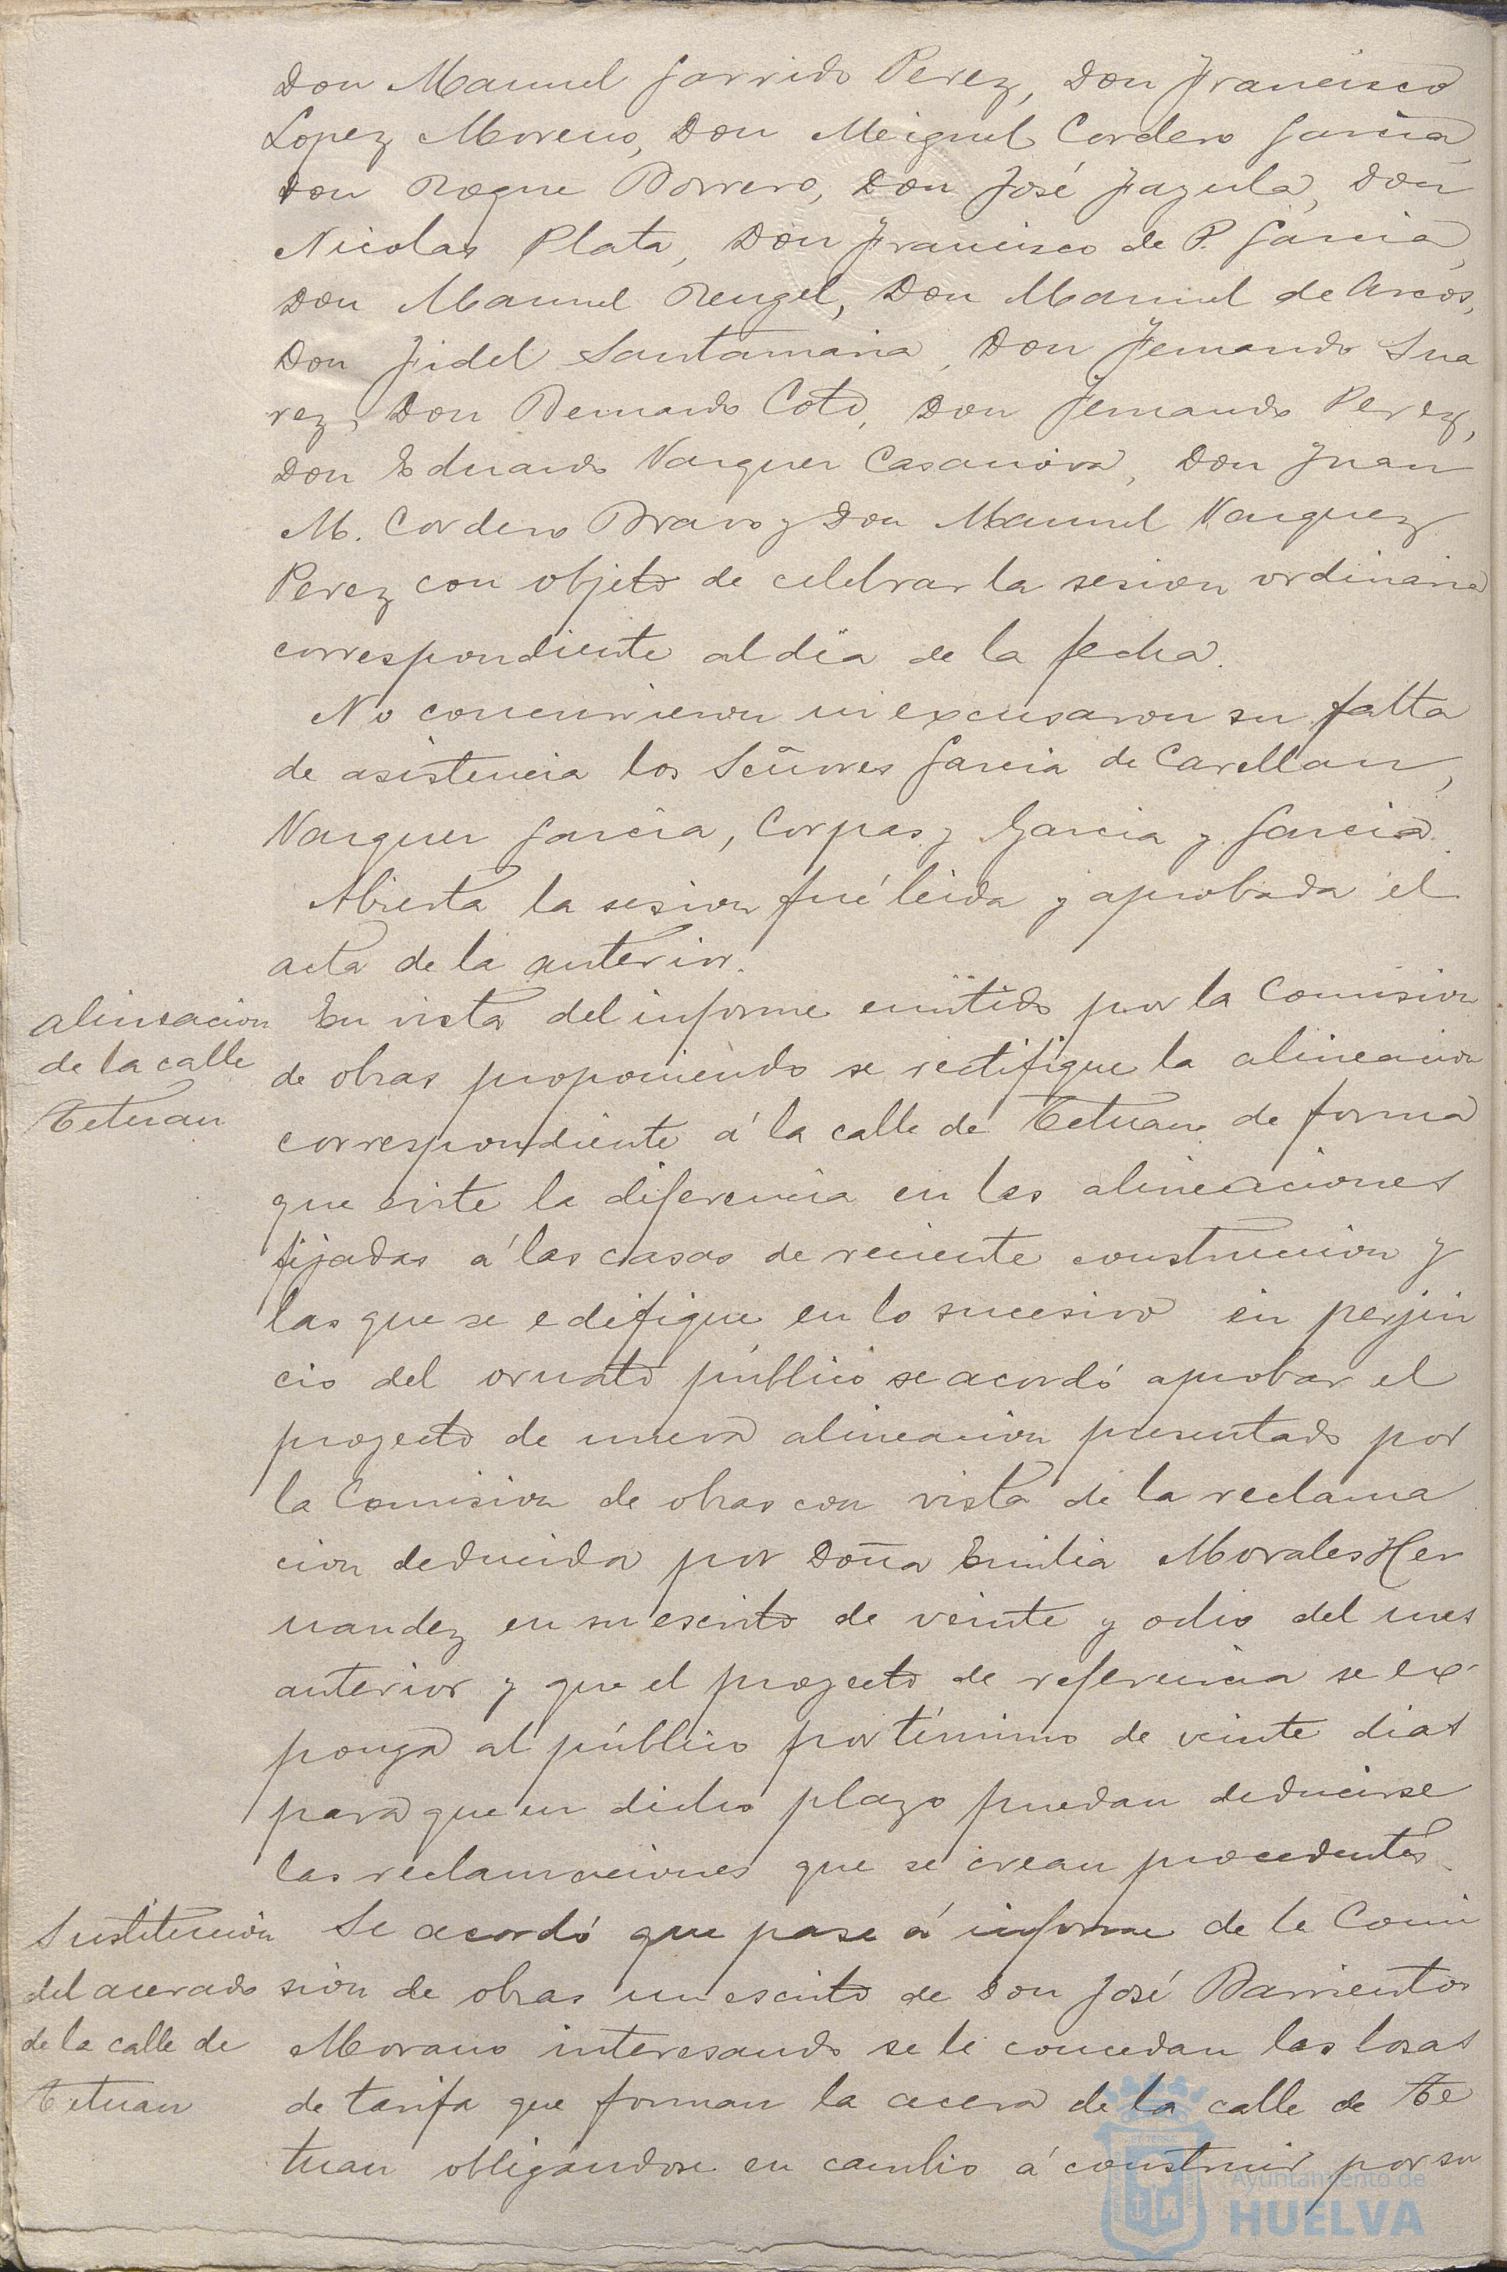 Don Manuel Garrido Perez, Don Francisco
Lopez Moreno, Don Meignel Cordero Garcia,
Don Roque Borrero, Don José Jazula, Don
Nicolas Plata, Don Francisco de P. Garcia,
Don Manuel Rengel, Don Manuel de Arcos,
Don Fidel Santamaria, Don Fernando Sua
rez, Don Bernardo Coto, Don Fernando Perez,
Don Eduardo Vazquez Casanova, Don Juan
M. Cordero Bravo y Don Manuel Vazquez
Perez con objeto de celebrar la sesion ordinaria
correspondiente al dia de la fecha.
No concurrieron ni excusaron su falta
de asistencia los Señores Garcia de Carellan,
Vazquez Garcia, Corpas y Garcia y Garcia.
Abierta la sesion fué leida y aprobada el
acta de la anterior.
alineacion
de la calle
Tetuan
En vista del informe emitido por la Comision
de obras proponiendo se rectifique la alineacion
correspondiente á la calle de Tetuan de forma
que evite la diferencia en las alineaciones
fijadas á las casas de reciente construccion y
las que se edifique en lo sucesivo en perjui
cio del ornato público se acordó aprobar el
proyecto de nueva alineacion presentado por
la Comision de obras con vista de la reclama
cion deducida por Doña Emilia Morales Her
nandez en su escrito de veinte y ocho del mes
anterior y que el proyecto de referencia se ex-
ponga al público por término de veinte dias
para que en dicho plazo puedan deducirse
las reclamaciones que se crean procedentes.
Sustitucion
del acerado
de la calle de
Tetuan
Se acordó que pase á informe de la Comi
sión de obras un escrito de Don José Barrientos
Morano interesando se le concedan las losas
de tarifa que forman la acera de la calle de Te
tuan obligandose en cambio á construir por su
Ayuntamiento de
HUELVA